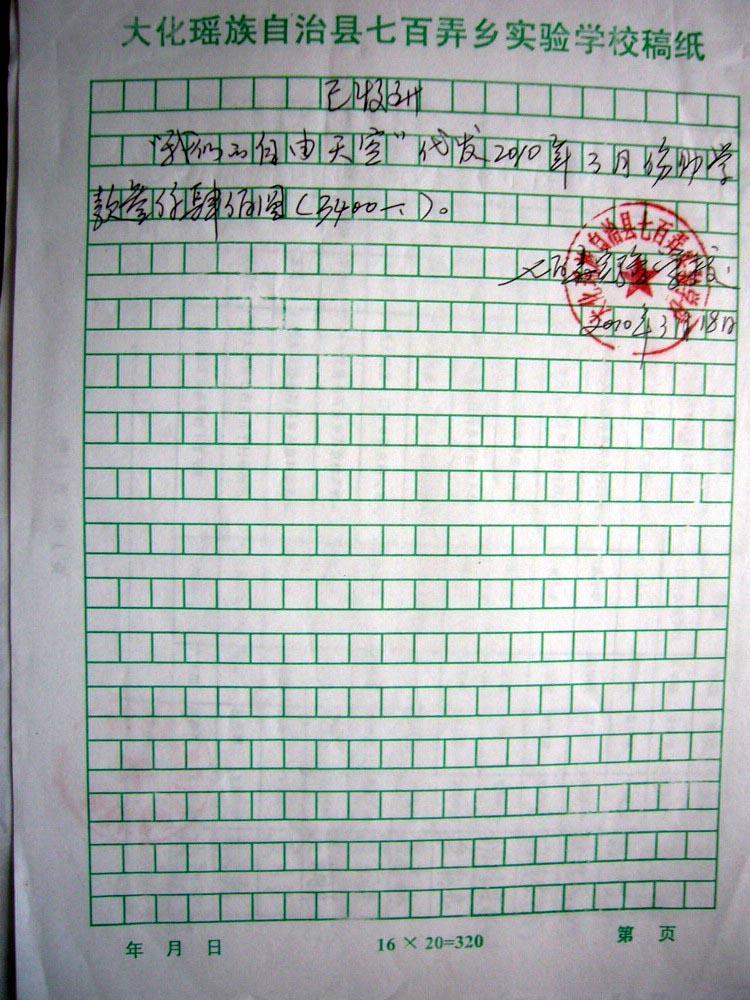 大化瑶族自治县七百弄乡实验学校稿纸
已收到
“我们的自由天空”代发2010年3月份助学
款叁仟肆佰圆(3400元)。
七百弄实验学校
2010年3月18日
年 月 日 16 × 20=320 第 页